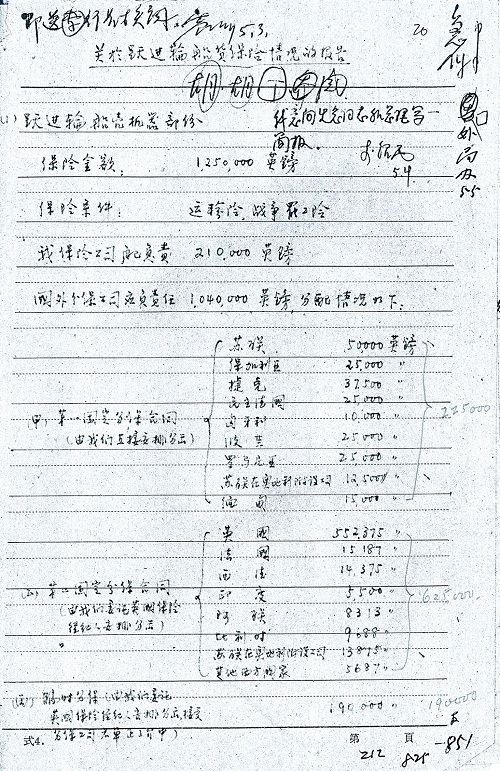 即送 行 5.3.
20
急件
关于跃进轮船货保险情况的报告
胡 胡 丁
(1) 跃进轮船壳机器部份
简报。
5.4
外局办
5.5
保险金额: 1,250,000 英镑
保险条件: 运输险, 战争罢工险
我保险公司自负责 210,000 英镑
国外分保公司应负责任 1,040,000 英镑, 分配情况如下:
苏联 50,000 英镑
保加利亚 25,000 〃
捷克 37,500 〃
民主德国 25,000 〃
(甲) 第一固定分保合同 匈牙利 10,000 〃 225000
(由我们直接安排分出) 波兰 25,000 〃
罗马尼亚 25,000 〃
苏联在奥地利附设公司 12,500 〃
缅甸 15,000 〃
英国 552,375 〃
法国 15187 〃
西德 14,375 〃
(乙) 第二固定分保合同 印度 5,500 〃 625000
(由我们委托英国保险 阿联 8313 〃
经纪人安排分出) 比利时 9688 〃
〃 苏联在奥地利附设公司 13875 〃
其他西方国家 5687 〃
(丙) 临时分保 (由我们委托
英国保险经纪人安排分出, 接受 190,000 〃 190000
分保公司名单正了解中)
式4. 第 頁
212 825 -851